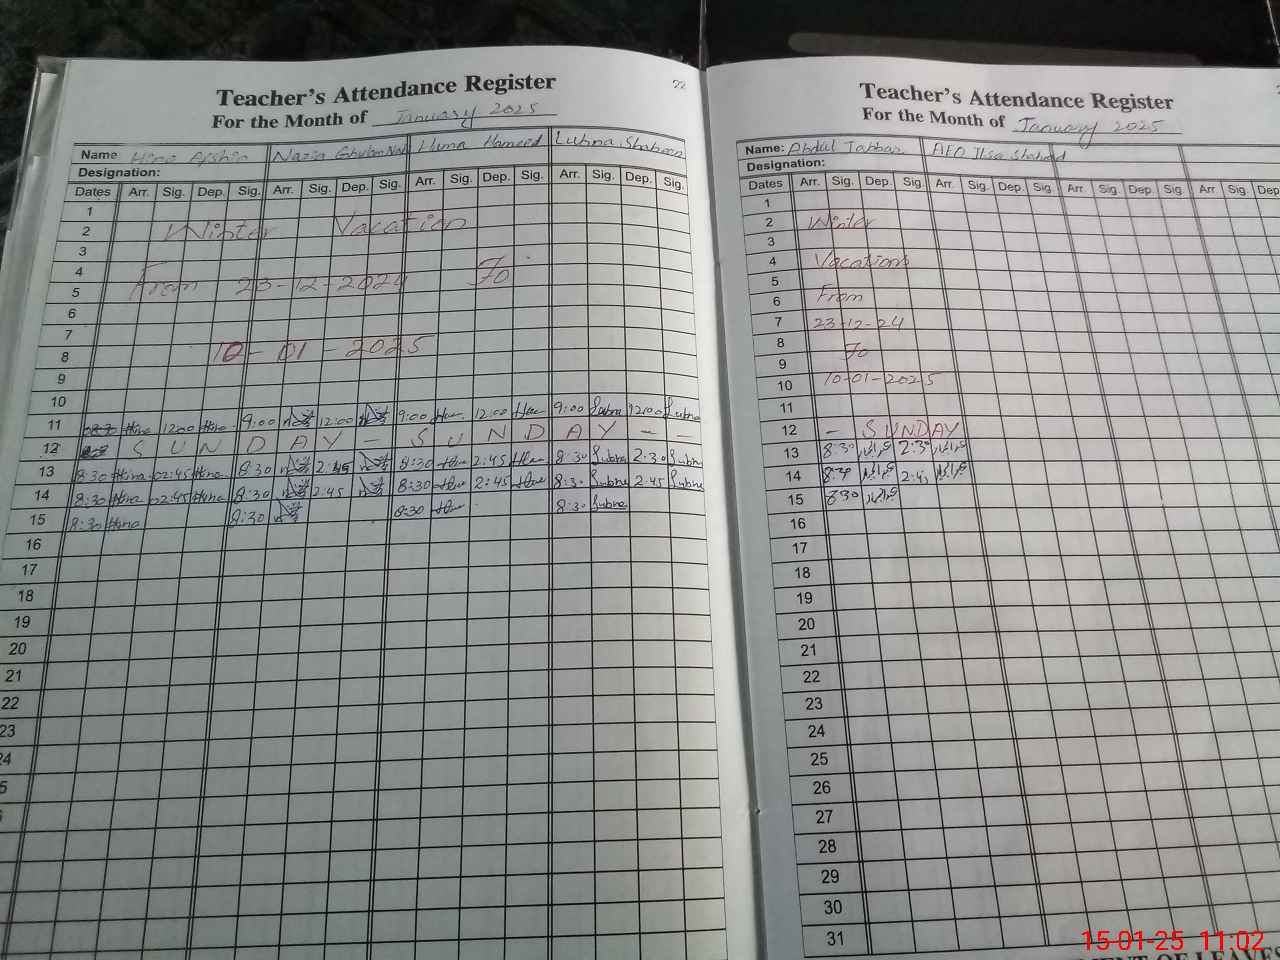 22
Teacher's Attendance Register
For the Month of January 2025
Name Hina Afshin Nazia Ghulam Nabi Huma Hameed Lubna Shaheen
Designation:
Dates Arr. Sig. Dep. Sig. Arr. Sig. Dep. Sig. Arr. Sig. Dep. Sig. Arr. Sig. Dep. Sig.
1
2 Winter Vacation
3
4
5 From 23-12-2024 To
6
7
8 10-01-2025
9
10
11 Hina 12:00 Hina 9:00 12:00 9:00 12:00 9:00 Lubna 12:00 Lubna
12 S U N D A Y - S U N D A Y - -
13 8:30 Hina 02:45 Hina 8:30 2:45 8:30 2:45 8:30 Lubna 2:30 Lubna
14 8:30 Hina 02:45 Hina 8:30 2:45 8:30 2:45 8:30 Lubna 2:45 Lubna
15 8:30 Hina 8:30 8:30 8:30 Lubna
16
17
18
19
20
21
22
23
24
Teacher's Attendance Register
For the Month of January 2025
Name: Abdul Jabbar AEO Ilsa Shahid
Designation:
Dates Arr. Sig. Dep. Sig. Arr. Sig. Dep. Sig. Arr. Sig. Dep. Sig. Arr. Sig. Dep
1
2 Winter
3
4 Vacations
5
6 From
7 23-12-24
8 To
9
10 10-01-2025
11
12 - SUNDAY
13 8:30 2:30
14 8:30 2:45
15 830
16
17
18
19
20
21
22
23
24
25
26
27
28
29
30
31
15-01-25 11:02